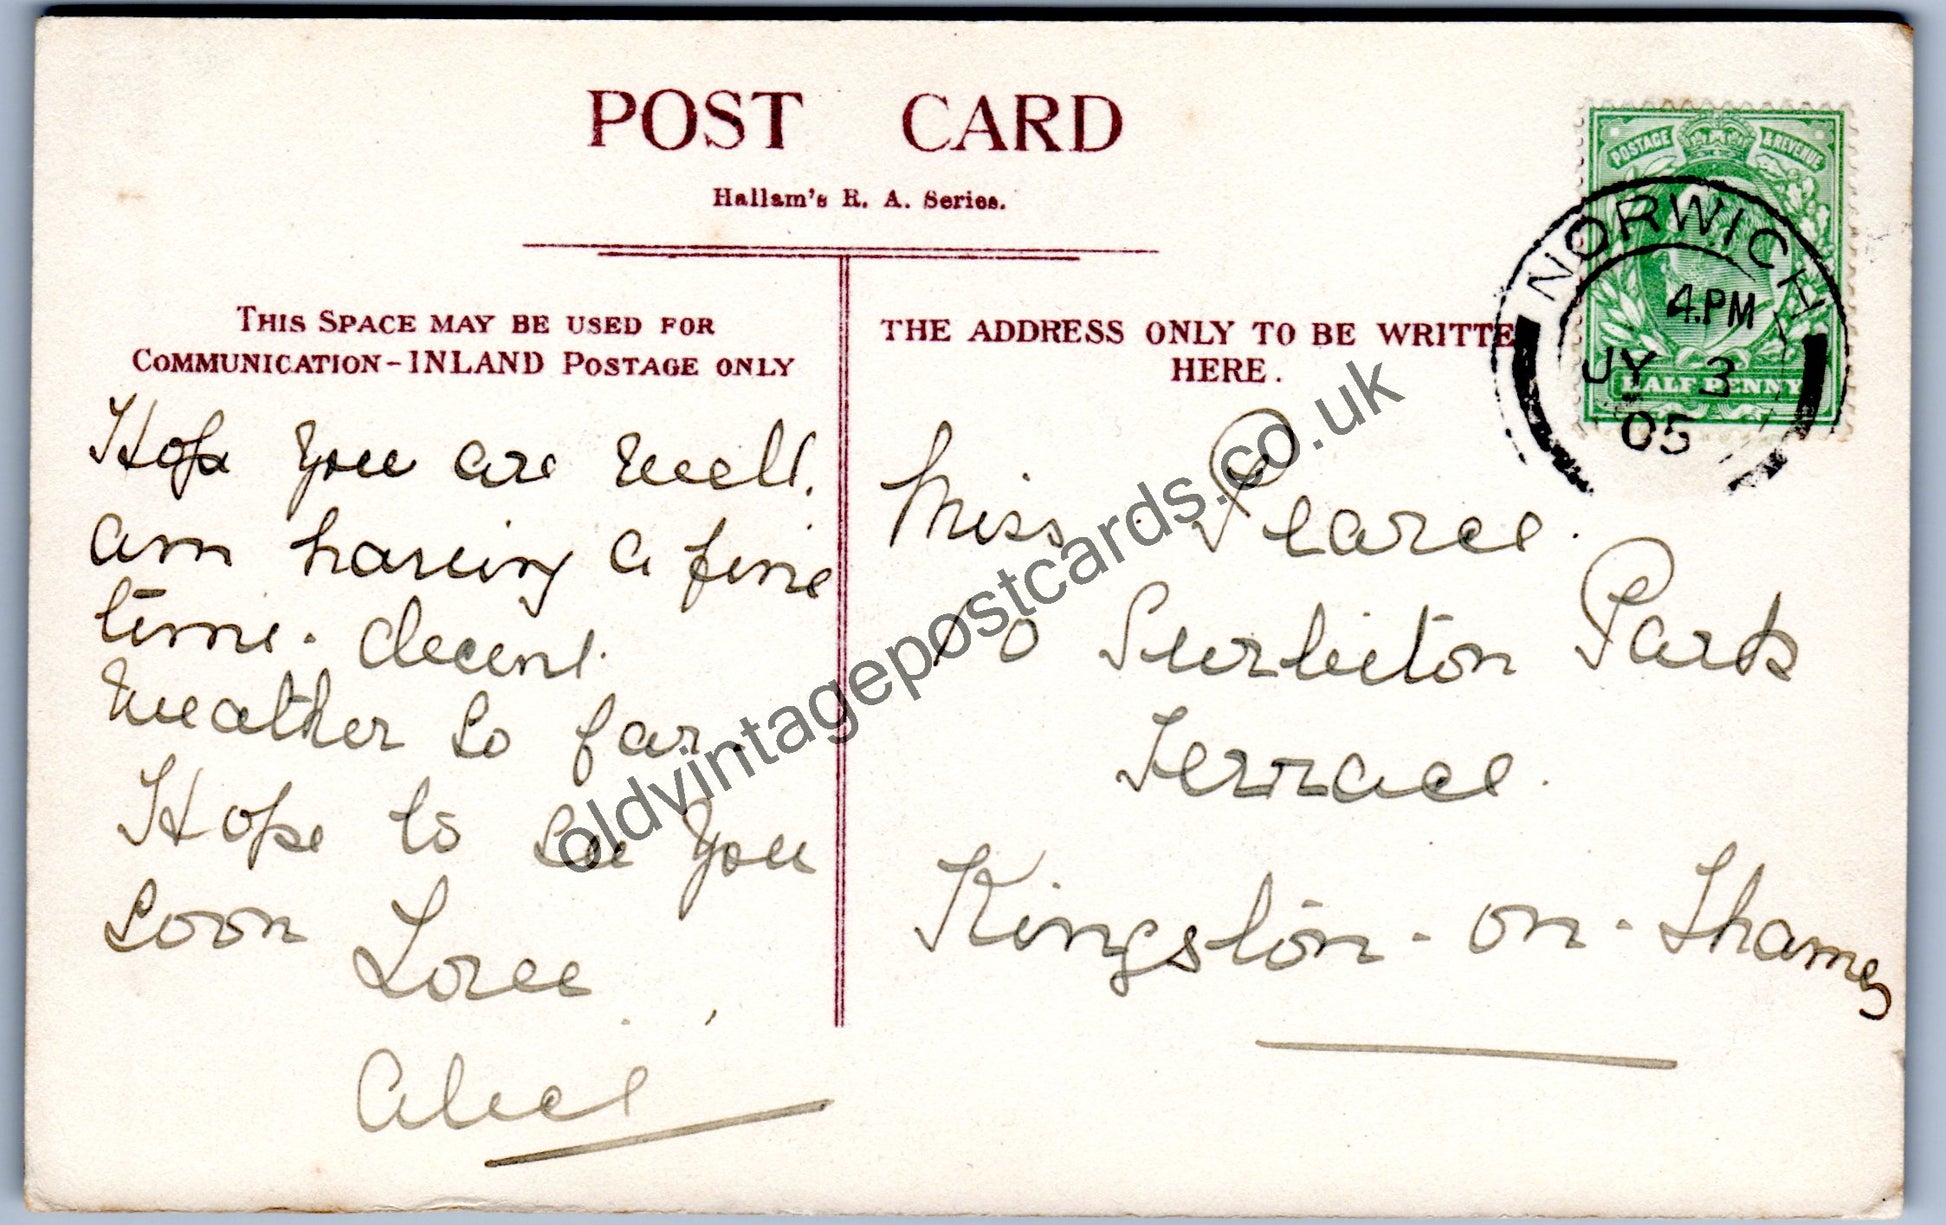 POST CARD
Hallam's R. A. Series.
THIS SPACE MAY BE USED FOR
COMMUNICATION-INLAND POSTAGE ONLY
THE ADDRESS ONLY TO BE WRITTE
HERE.
POSTAGE & REVENUE
HALF PENNY
NORWICH
4.PM
JY 3
05
Hope you are well.
am having a fine
time. decent
weather so far.
Hope to see you
soon
Love
Alice
Miss. Pearce.
10 Surbiton Park
Terrace.
Kingston-on-Thames
oldvintagepostcards.co.uk